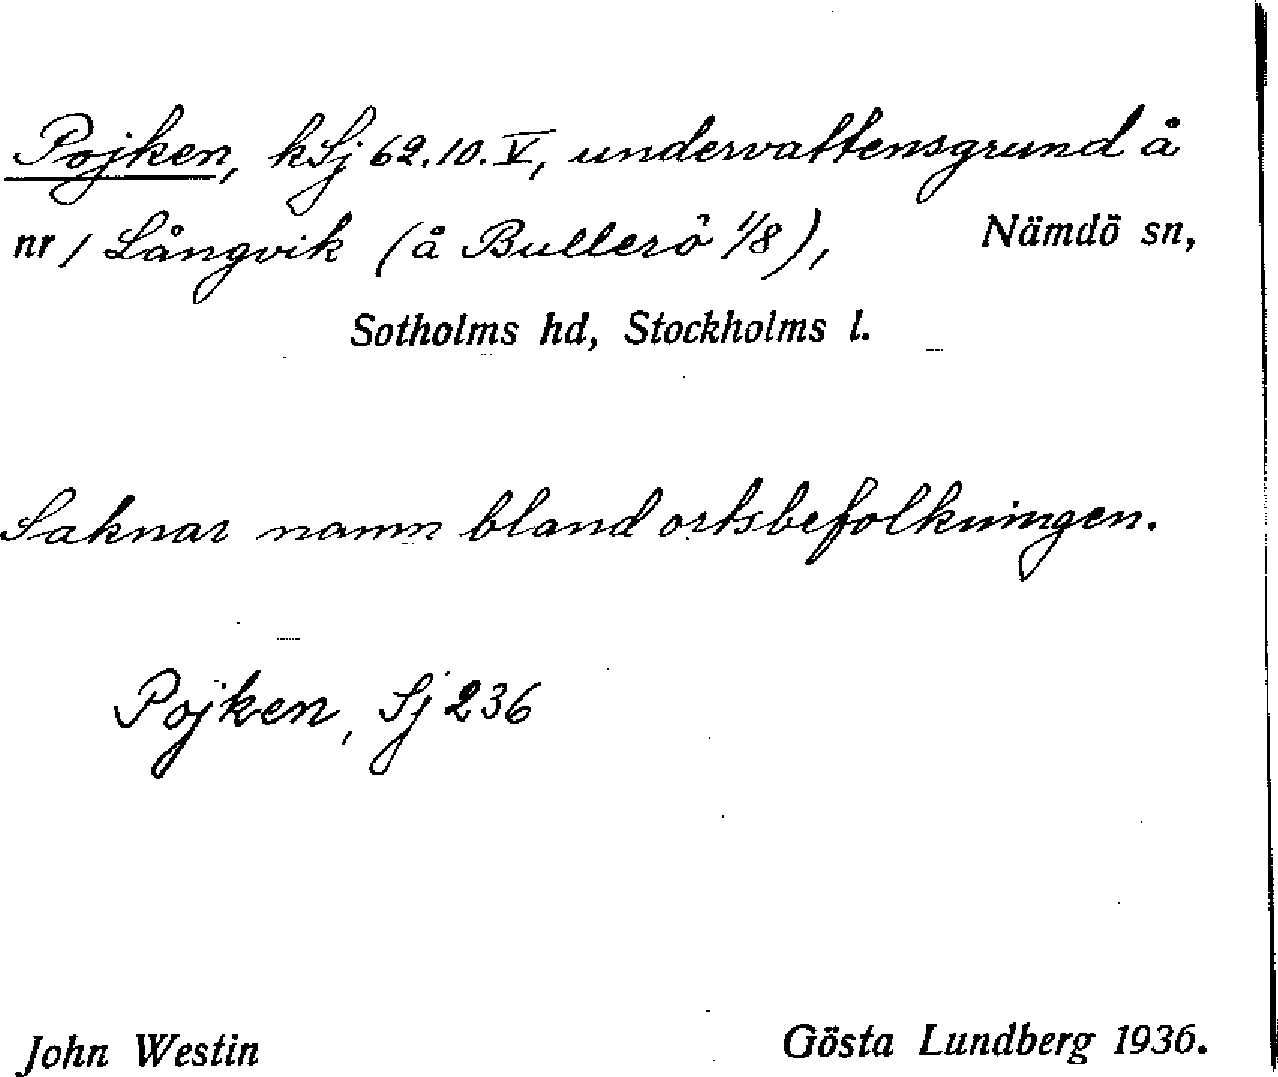 Pojken, kSj 62.10.V, undervattensgrund å
nr / Långvik (å Bullerö 1/8), Nämdö sn,
Sotholms hd, Stockholms l.
Saknar namn bland ortsbefolkningen.
Pojken, Sj 236
John Westin Gösta Lundberg 1936.